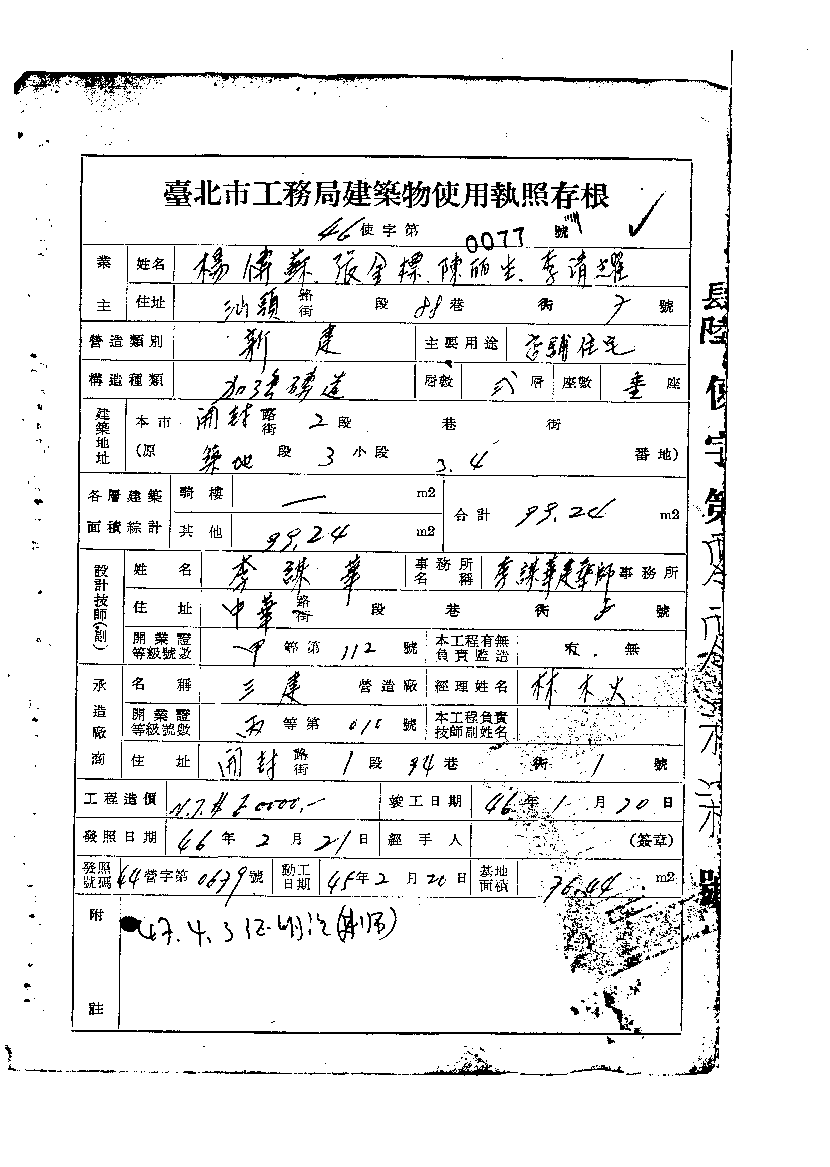 臺北市工務局建築物使用執照存根
46使字第0077號
業主 姓名 楊偉蘇、張金標、陳丽生、李清耀
住址 汕頭路街 段 88巷 衖 7 號
營造類別 新建 主要用途 店舖住宅
構造種類 加强磚造 层數 弍層 座數 壹座
建築地址 本市 開封路街 2段 巷 衖
(原 築地 段 3 小段 3.4 番地)
各層建築面積綜計 騎樓 — m2 合計 99.24 m2
其他 99.24 m2
設計技師(副) 姓名 李諫華 事務所名稱 李諫華建築師事務所
住址 中華路街 段 巷 衖 號
開業證等級號數 甲等第112號 本工程有無負責監造 有.無
承造廠商 名稱 三建 營造廠 經理姓名 林木火
開業證等級號數 丙等第 號 本工程負責技師副姓名
住址 開封路街 1段 94巷 衖 1 號
工程造價 N.T.$ 0000.- 竣工日期 46年1月20日
發照日期 46年2月21日 經手人 (簽章)
發照號碼 44營字第0679號 動工日期 45年2月20日 基地面積 76.44 m2
附註 47.4.3
肆陸使字第零零柒柒號